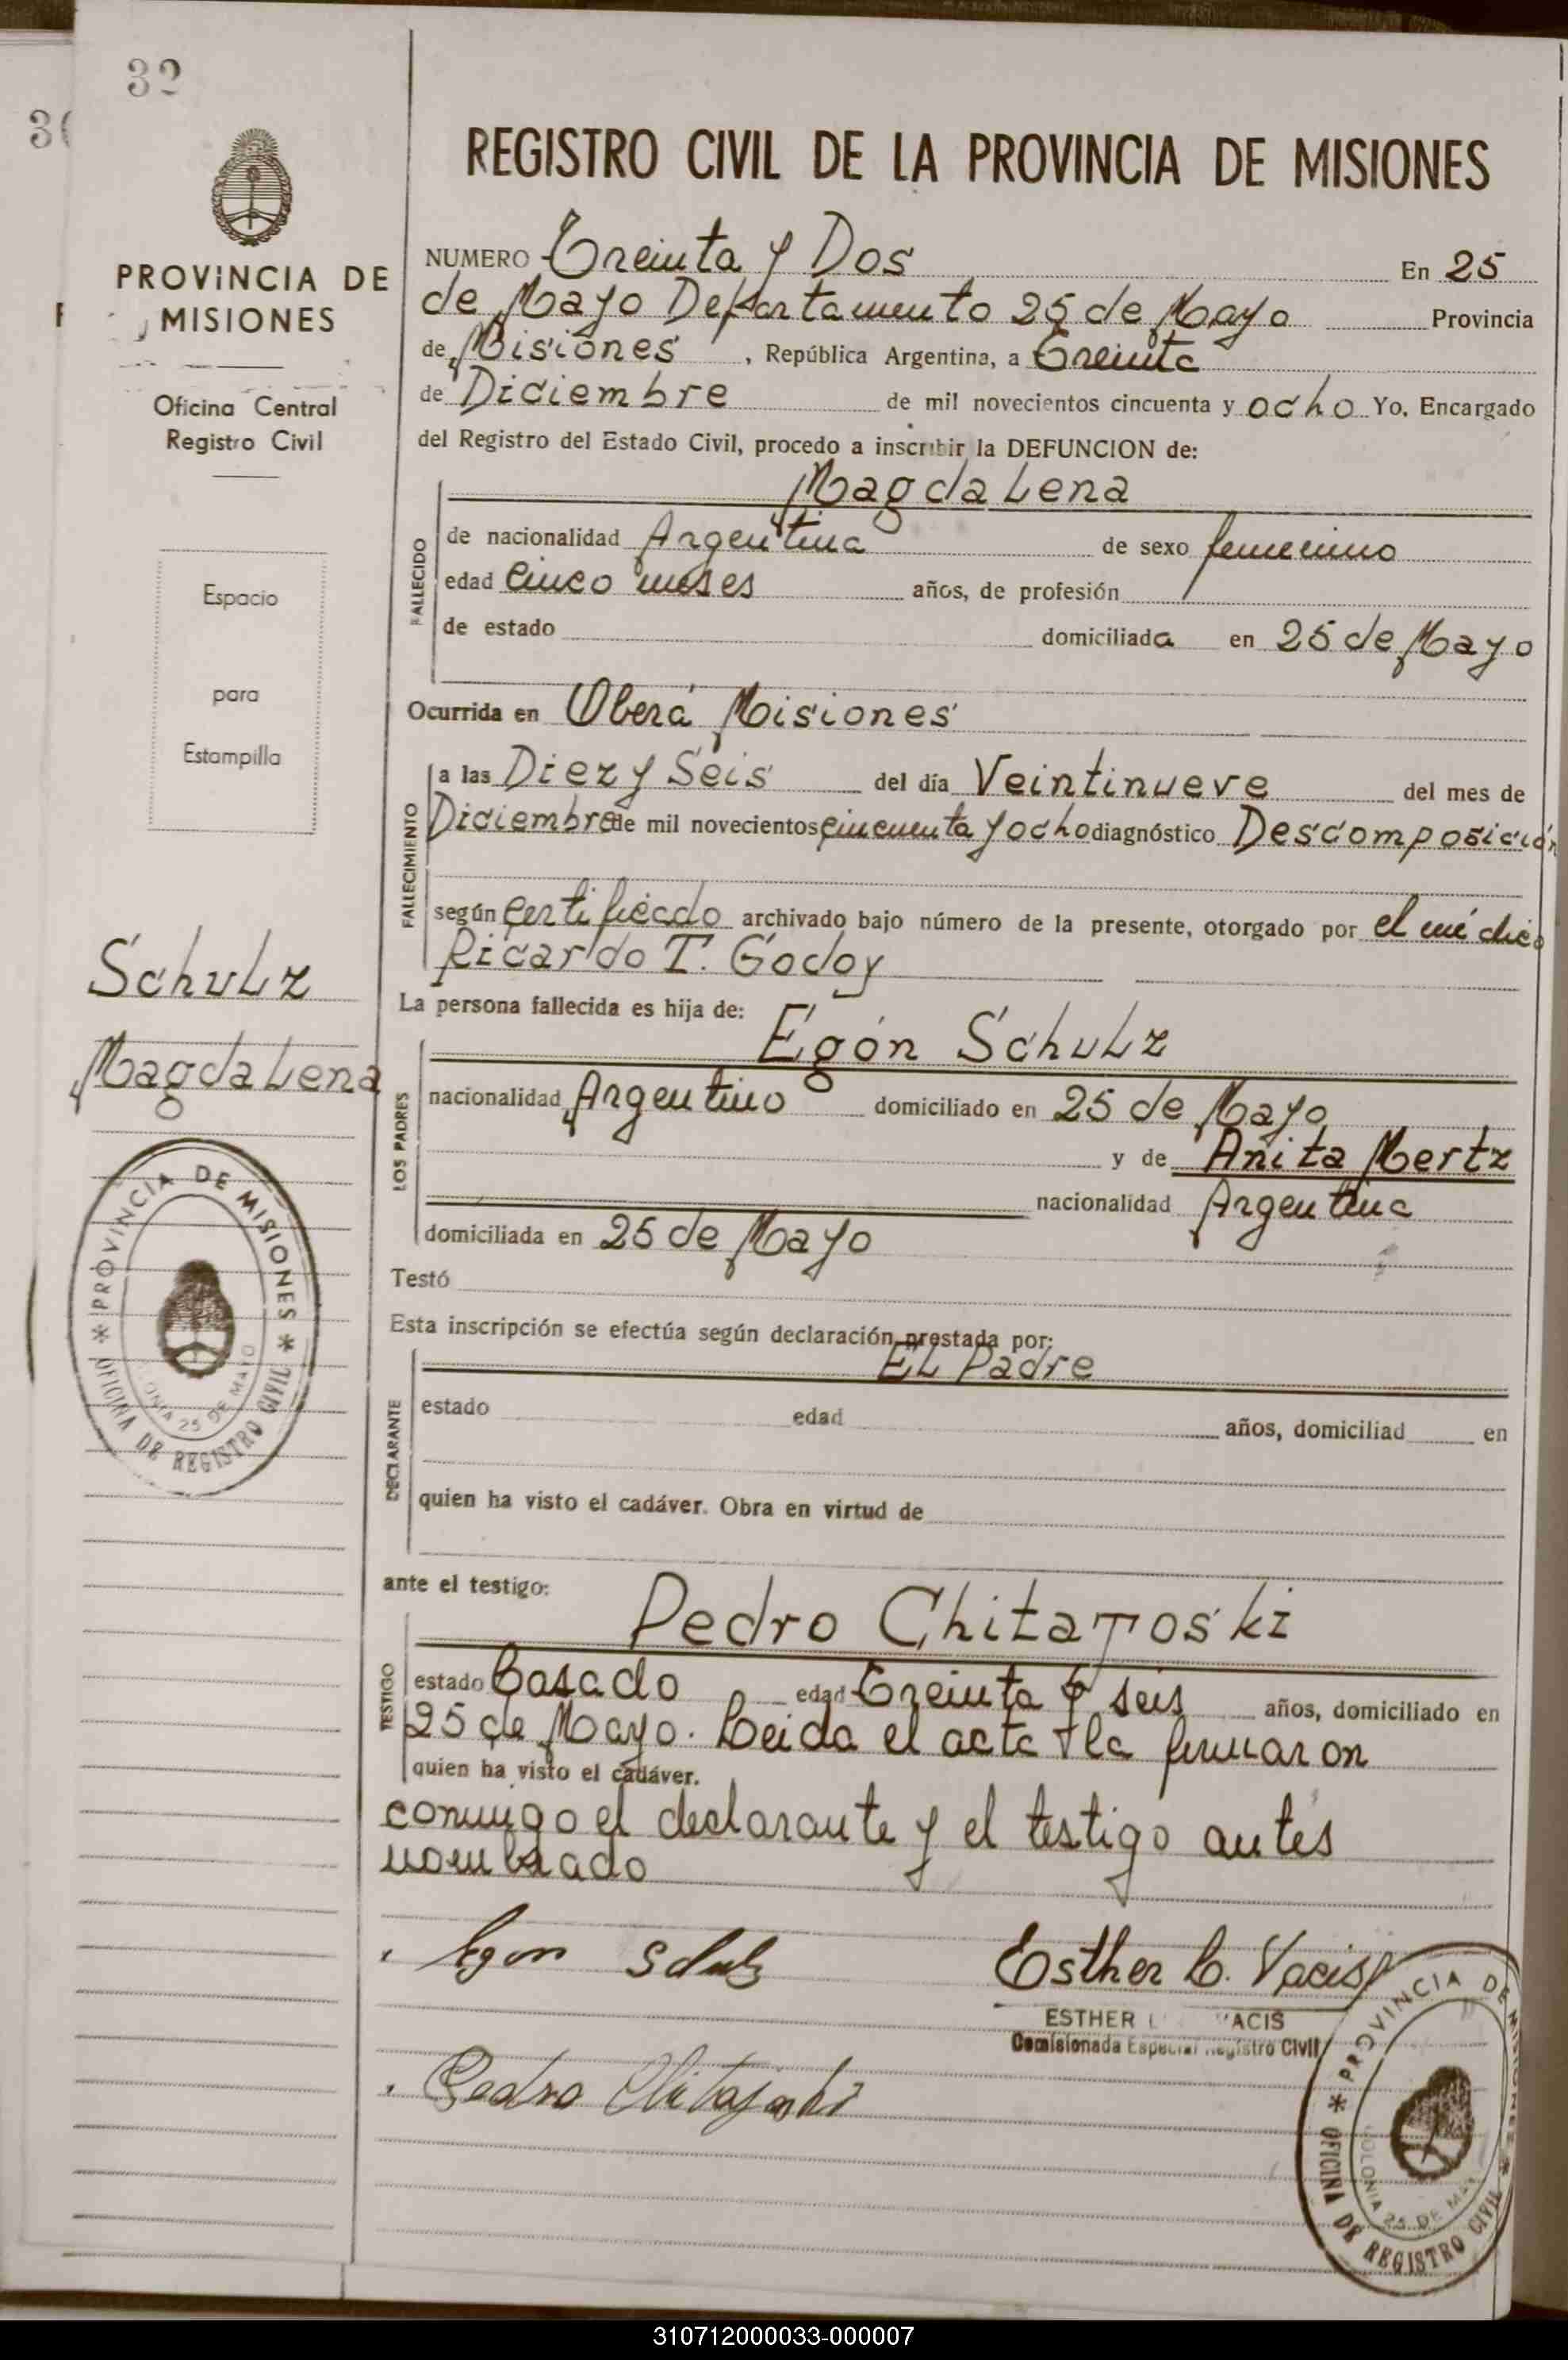 32
PROVINCIA DE
MISIONES
Oficina Central
Registro Civil
Espacio
para
Estampilla
Schulz
Magdalena
* PROVINCIA DE MISIONES * OFICINA DE REGISTRO CIVIL
COLONIA 25 DE MAYO
REGISTRO CIVIL DE LA PROVINCIA DE MISIONES
NUMERO Treinta y Dos En 25
de Mayo Departamento 25 de Mayo Provincia
de Misiones, República Argentina, a Treinta
de Diciembre de mil novecientos cincuenta y ocho Yo, Encargado
del Registro del Estado Civil, procedo a inscribir la DEFUNCION de:
Magdalena
FALLECIDO
de nacionalidad Argentina de sexo femenino
edad cinco meses años, de profesión
de estado domiciliada en 25 de Mayo
Ocurrida en Oberá Misiones
FALLECIMIENTO
a las Diez y Seis del día Veintinueve del mes de
Diciembre de mil novecientos cincuenta y ocho diagnóstico Descomposición
según certificado archivado bajo número de la presente, otorgado por el médico
Ricardo T. Godoy
La persona fallecida es hija de:
Egón Schulz
LOS PADRES
nacionalidad Argentino domiciliado en 25 de Mayo
y de Anita Mertz
nacionalidad Argentina
domiciliada en 25 de Mayo
Testó
Esta inscripción se efectúa según declaración prestada por:
El Padre
DECLARANTE
estado edad años, domiciliad en
quien ha visto el cadáver. Obra en virtud de
ante el testigo:
Pedro Chitaroski
TESTIGO
estado Casado edad Treinta y seis años, domiciliado en
25 de Mayo. Leida el acta la firmaron
quien ha visto el cadáver.
conmigo el declarante y el testigo antes
nombrado
Egon Schulz
Esther C. Vacis
ESTHER VACIS
Comisionada Especial Registro Civil
Pedro Chitajoski
* PROVINCIA DE MISIONES * OFICINA DE REGISTRO CIVIL
COLONIA 25 DE MAYO
310712000033-000007